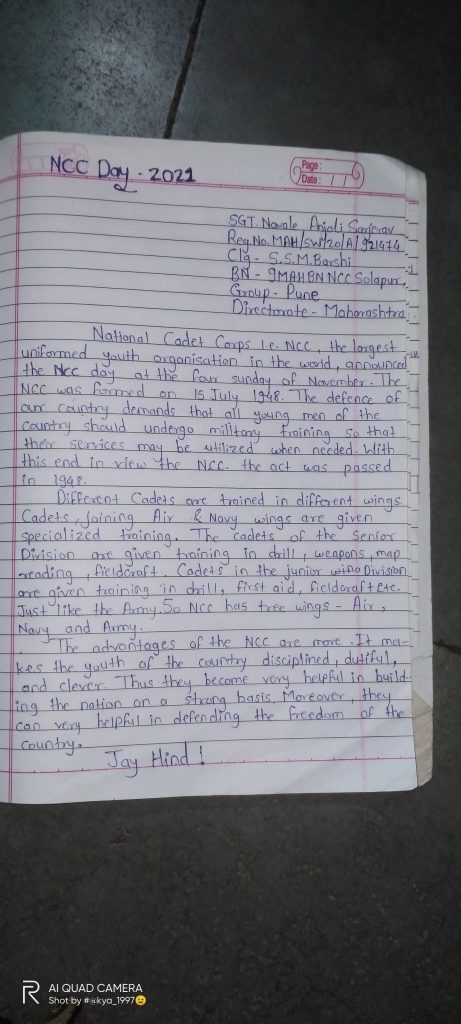 NCC Day - 2021
Page:
Date: / /
SGT. Navale Anjali Sarjerav
Reg.No. MAH/SW/20/A/921474
Clg - S.S.M.Barshi
BN - 9MAHBN NCC Solapur,
Group - Pune
Directorate - Maharashtra
National Cadet Corps i.e. NCC, the largest
uniformed youth organisation in the world, announced
the Ncc day at the four sunday of November. The
NCC was formed on 15 July 1948. The defence of
our country demands that all young men of the
country should undergo military training so that
their services may be utilized when needed. With
this end in view the NCC. the act was passed
in 1948.
Different Cadets are trained in different wings.
Cadets, joining Air & Navy wings are given
specialized training. The cadets of the Senior
Division are given training in drill, weapons, map
reading, fieldcraft. Cadets in the junior Division
are given training in drill, first aid, fieldcraft etc.
Just like the Army. So NCC has tree wings - Air,
Navy and Army.
The advantages of the NCC are more. It ma-
kes the youth of the country disciplined, dutiful,
and clever. Thus they become very helpful in build-
ing the nation on a strong basis. Moreover, they
can very helpful in defending the freedom of the
country.
Jay Hind!
AI QUAD CAMERA
Shot by #@kya_1997😉